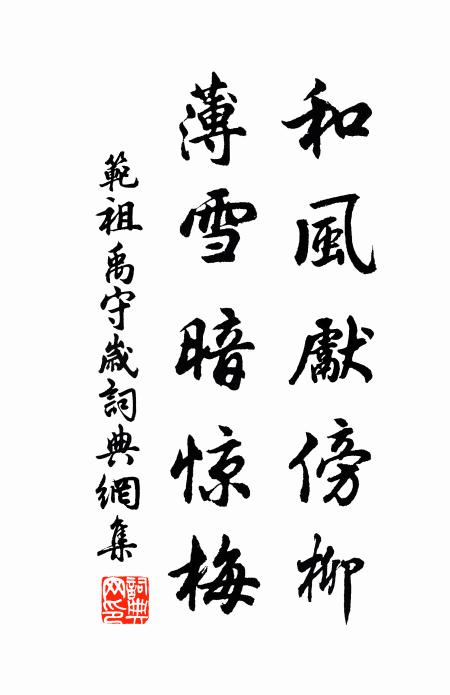 和風獻傍柳
薄雪暗惊梅
範祖禹守歲詞典網集
詞典网印